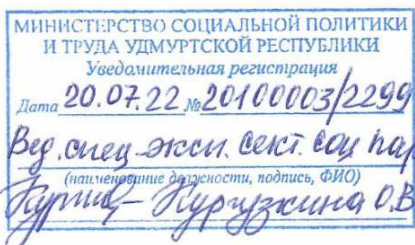 МИНИСТЕРСТВО СОЦИАЛЬНОЙ ПОЛИТИКИ
И ТРУДА УДМУРТСКОЙ РЕСПУБЛИКИ
Уведомительная регистрация
Дата 20.07.22 № 20100003/2299
Вед. спец-эксп. сект. соц пар
(наименование должности, подпись, ФИО)
О.В